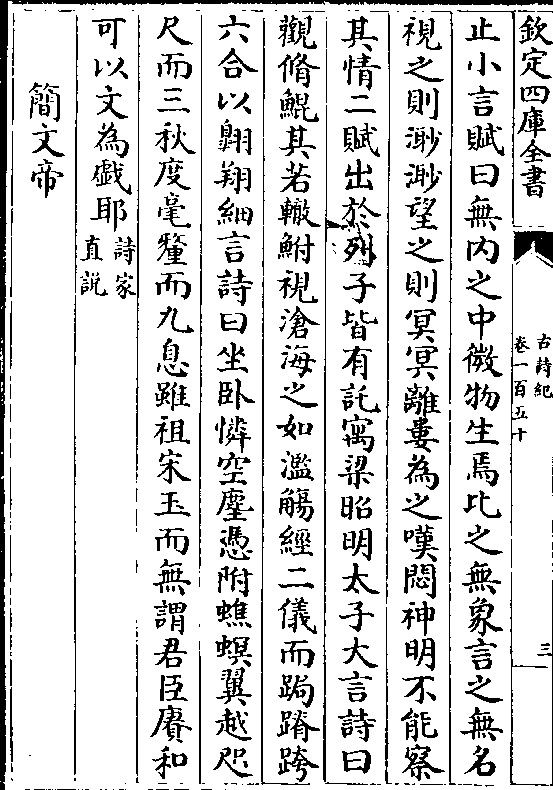 欽定四庫全書
古詩紀
卷一百五十
三
止小言賦曰無内之中微物生焉比之無象言之無名
視之則渺渺望之則冥冥離婁為之嘆悶神明不能察
其情二賦出於列子皆有託寓梁昭明太子大言詩曰
觀脩鯤其若轍鮒視滄海之如濫觴經二儀而跼蹐跨
六合以翺翔細言詩曰坐卧憐空塵憑附蟭螟翼越咫
尺而三秋度毫釐而九息雖祖宋玉而無謂君臣賡和
可以文為戲耶詩家
直説
簡文帝